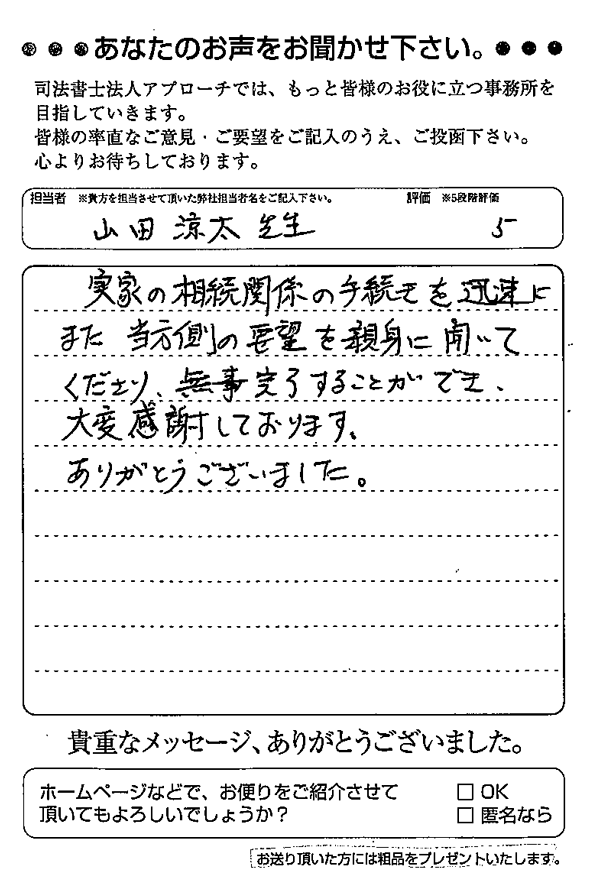 ●●●あなたのお声をお聞かせ下さい。●●●
司法書士法人アプローチでは、もっと皆様のお役に立つ事務所を
目指していきます。
皆様の率直なご意見・ご要望をご記入のうえ、ご投函下さい。
心よりお待ちしております。
担当者 ※貴方を担当させて頂いた弊社担当者名をご記入下さい。 評価 ※5段階評価
山田 涼太 先生 5
実家の相続関係の手続きを迅速に
また 当方側の要望を親身に聞いて
くださり、無事完了することができ、
大変感謝しております。
ありがとうございました。
貴重なメッセージ、ありがとうございました。
ホームページなどで、お便りをご紹介させて □ OK
頂いてもよろしいでしょうか？ □ 匿名なら
お送り頂いた方には粗品をプレゼントいたします。